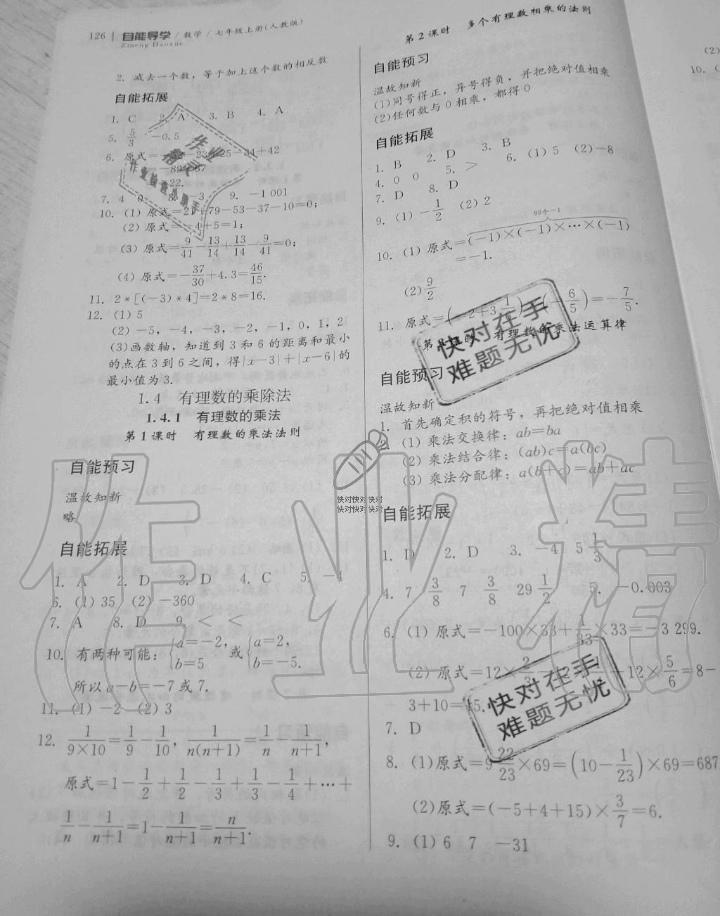 126 自能导学 / 数学 / 七年级上册(人教版)
Zineng Daoxue
2. 减去一个数,等于加上这个数的相反数
自能拓展
1. C 2. A 3. B 4. A
5. 5/3 -0.5
6. 原式=
7. 4 9. -1 001
10. (1) 原式=21+79-53-37-10=0;
(2) 原式= 4+5=1;
(3) 原式=9/41-13/14+13/14-9/41=0;
(4) 原式=-37/30+4.3=46/15.
11. 2*[(-3)*4]=2*8=16.
12. (1)5
(2)-5,-4,-3,-2,-1,0,1,2
(3)画数轴,知道到3和6的距离和最小
的点在3到6之间,得|x-3|+|x-6|的
最小值为3.
1.4 有理数的乘除法
1.4.1 有理数的乘法
第1课时 有理数的乘法法则
自能预习
温故知新
略
自能拓展
1. A 2. D 3. D 4. C 5. -4
6. (1)35 (2)-360
7. A 8. D 9. < <
10. 有两种可能:{a=-2, b=5 或{a=2, b=-5.
所以a-b=-7或7.
11. (1)-2 (2)3
12. 1/(9×10)=1/9-1/10, 1/(n(n+1))=1/n-1/(n+1),
原式=1-1/2+1/2-1/3+1/3-1/4+…+
1/n-1/(n+1)=1-1/(n+1)=n/(n+1).
第2课时 多个有理数相乘的法则
自能预习
温故知新
(1)同号得正,异号得负,并把绝对值相乘
(2)任何数与0相乘,都得0
自能拓展
1. B 2. D 3. B
4. 0 0 5. > 6. (1)5 (2)-8
7. D 8. D
9. (1)-1/2 (2)2
10. (1)原式=(-1)×(-1)×…×(-1)
=-1.
(2)9/2
11. 原式= =-7/5.
有理数的乘法运算律
自能预习
温故知新
1. 首先确定积的符号,再把绝对值相乘
(1)乘法交换律:ab=ba
(2)乘法结合律:(ab)c=a(bc)
(3)乘法分配律:a(b+c)=ab+ac
自能拓展
1. D 2. D 3. -4 5 1/3
4. 7 3/8 7 3/8 29 1/2 5. -0.003
6. (1)原式=-100×33+1/33×33=-3 299.
(2)原式=12× +12×5/6=8-
3+10=15.
7. D
8. (1)原式=9 22/23×69=(10-1/23)×69=687
(2)原式=(-5+4+15)×3/7=6.
9. (1)6 7 -31
快对在手
难题无忧
快对在手
难题无忧
快对快对 快对
快对快对 快对
作业精
作业
精灵
(2)
10. (